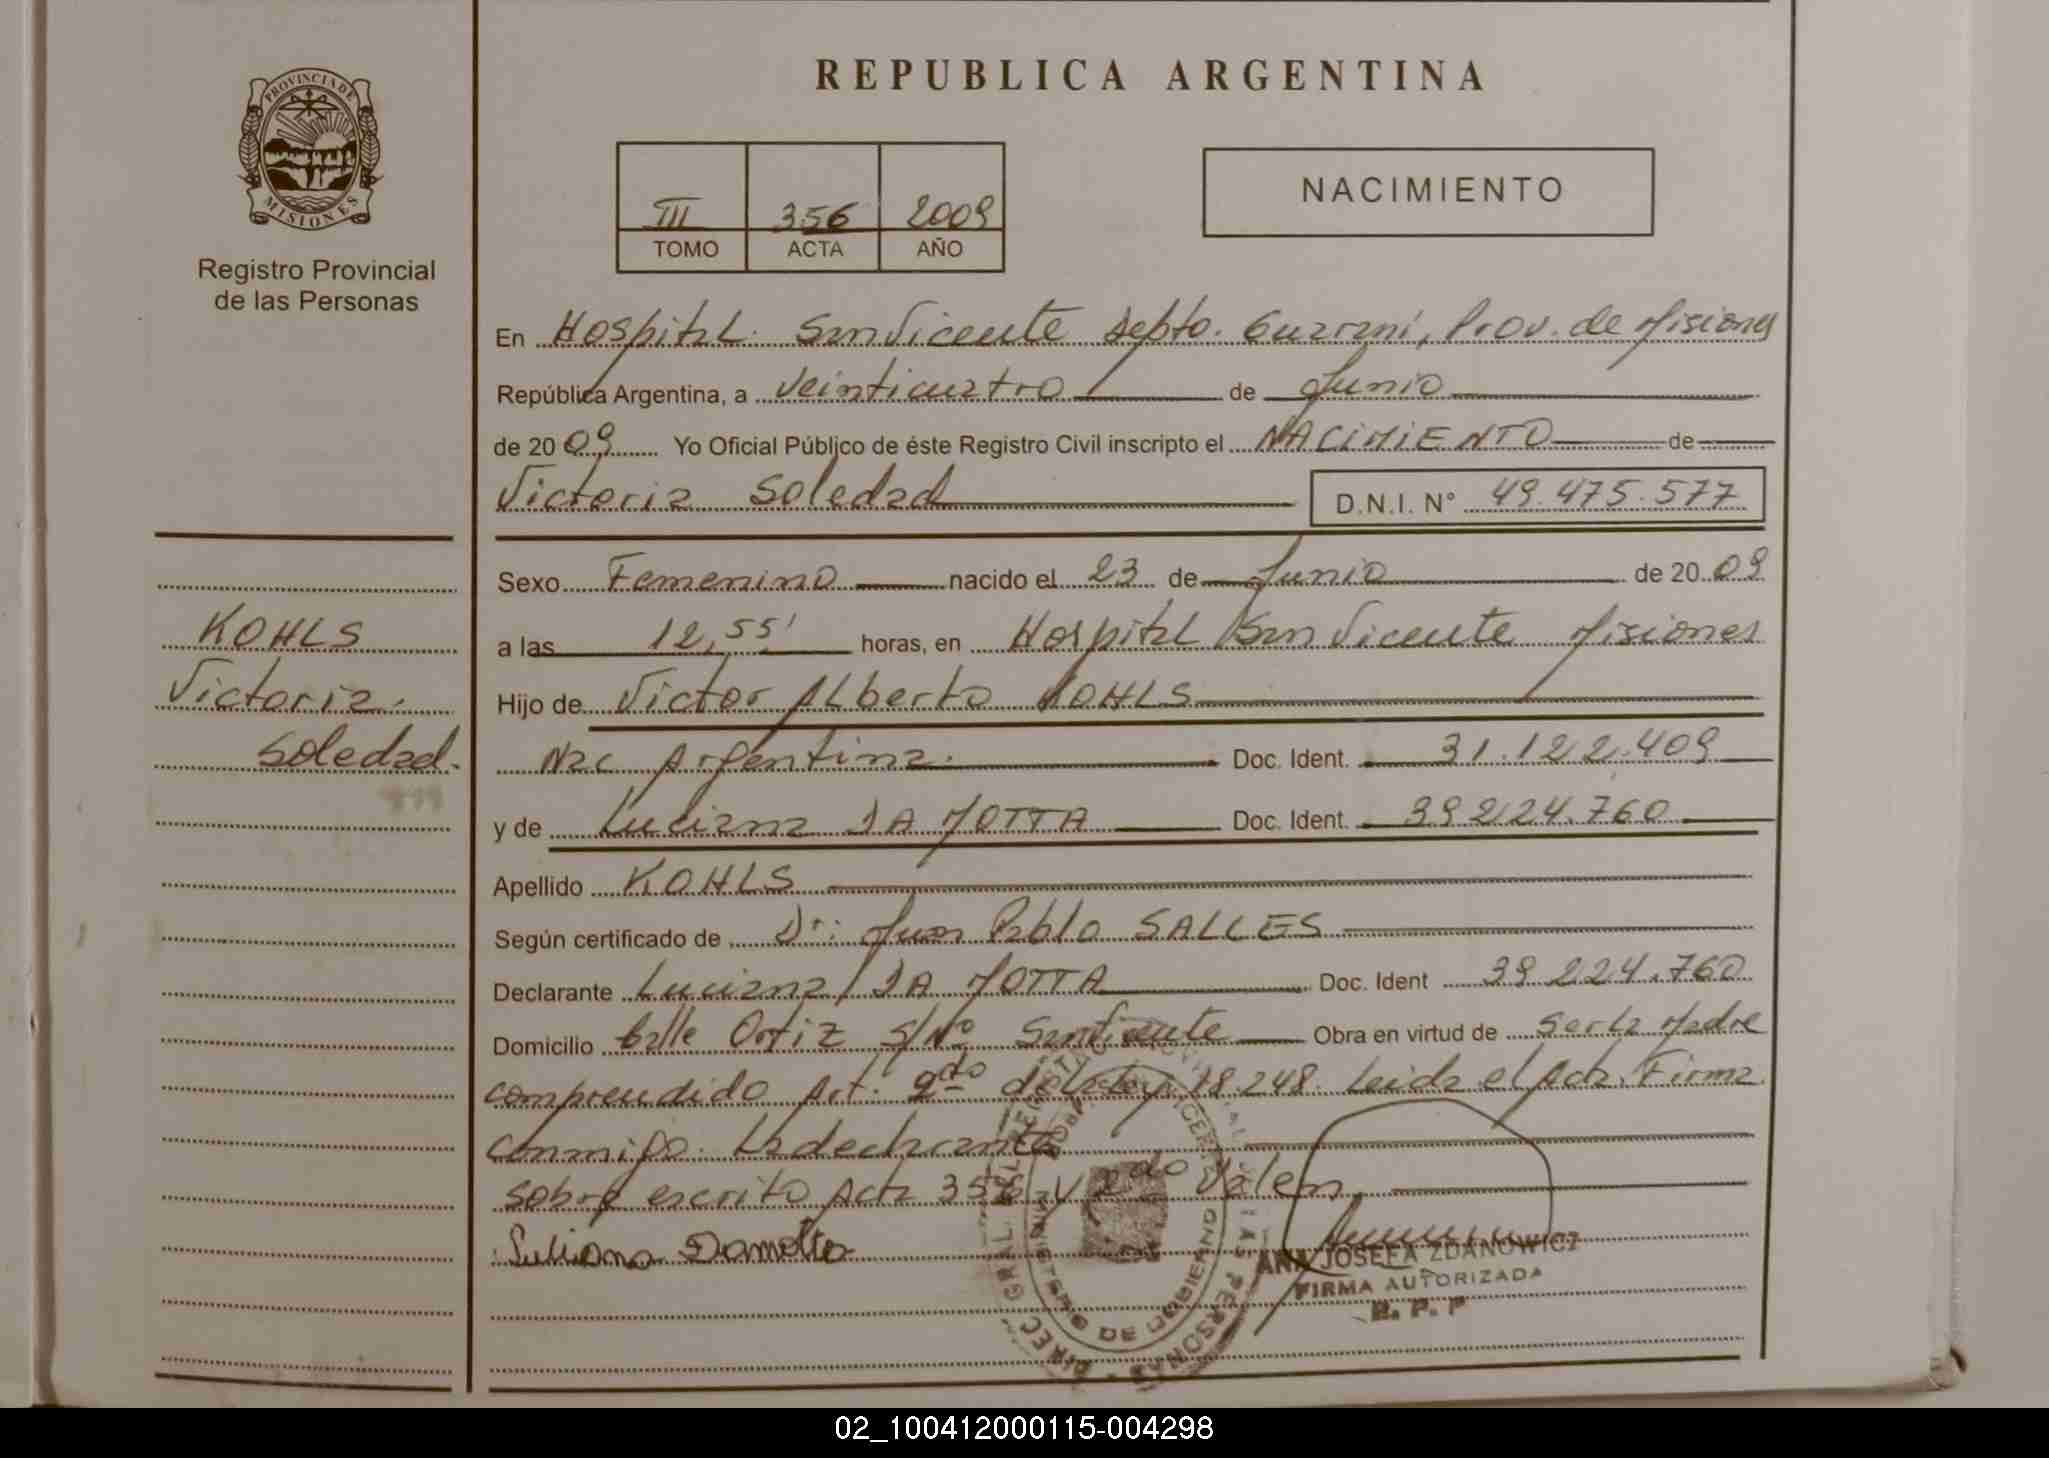 PROVINCIA DE
MISIONES
Registro Provincial
de las Personas
KOHLS
Victoria
Soledad.
REPUBLICA ARGENTINA
III 356 2009
TOMO ACTA AÑO
NACIMIENTO
En Hospital San Vicente Depto. Guaraní, Prov. de Misiones
República Argentina, a Veinticuatro de Junio
de 20 09 Yo Oficial Público de éste Registro Civil inscripto el NACIMIENTO de
Victoria Soledad D.N.I. N° 49.475.577
Sexo Femenino nacido el 23 de Junio de 20 09
a las 12,55' horas, en Hospital San Vicente Misiones
Hijo de Victor Alberto KOHLS
Nac Argentina. Doc. Ident. 31.122.409
y de Luciana DA MOTTA Doc. Ident. 39224.760
Apellido KOHLS
Según certificado de Dr: Juan Pablo SALLES
Declarante Luciana DA MOTTA Doc. Ident 39 224.760
Domicilio Calle Ortiz S/Nº San Vicente Obra en virtud de Ser La Madre
comprendido Art. 2do de la Ley 18.248. Leida el Acta. Firma
conmigo. La declarante
sobre escrito Acta 356 y 2do Valen.
ANA JOSEFA ZDANOWICZ
FIRMA AUTORIZADA
R. P. P
02_100412000115-004298